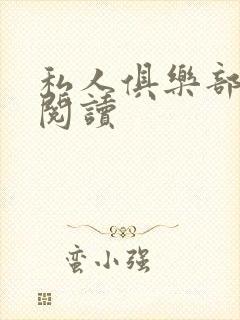 私人俱樂部
閱讀
蛮小强